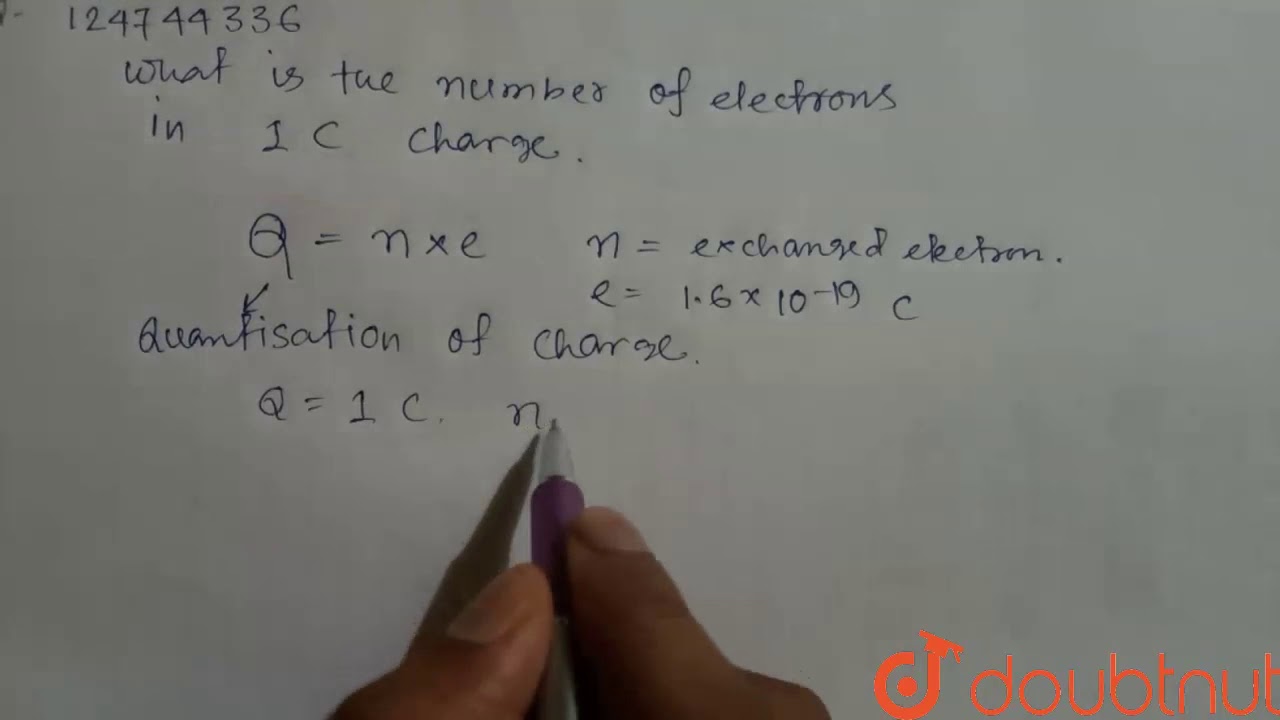 124744336
What is the number of electrons
in 1 C charge.
Q = n×e n = exchanged electron.
e = 1.6×10-19 C
Quantisation of charge.
Q = 1 C. n
doubtnut